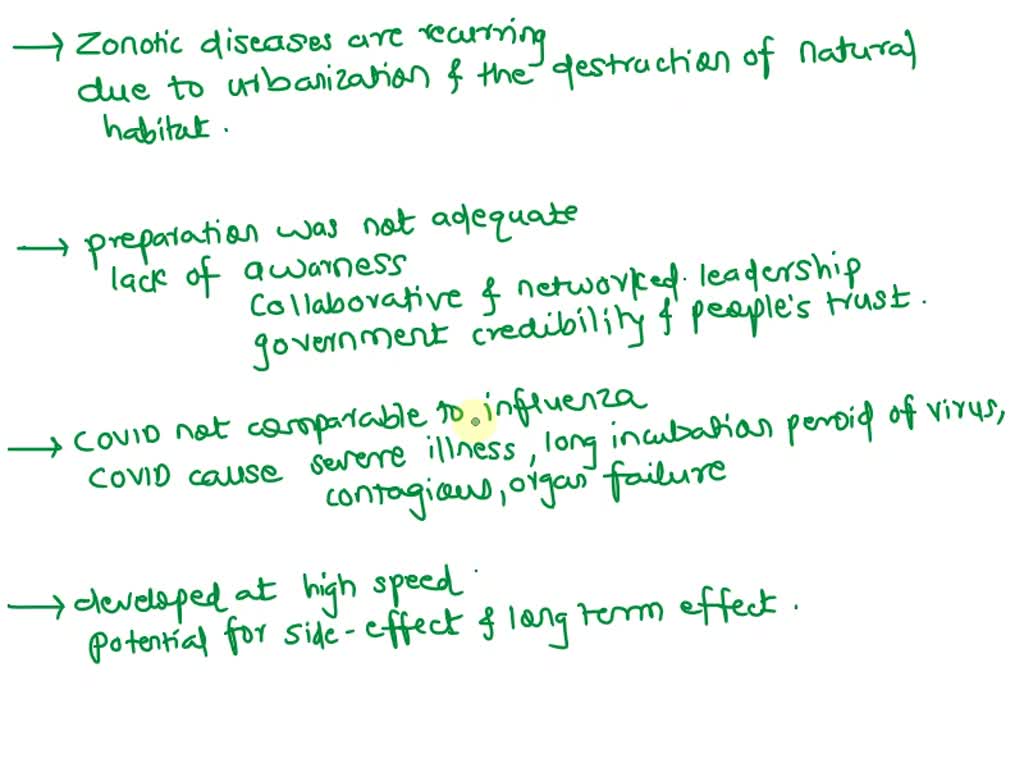 → Zonotic diseases are recurring
due to urbanization & the destruction of natural
habitat.
→ preparation was not adequate
lack of awarness
collaborative & networked. leadership
government credibility & people's trust.
→ COVID not comparable to influenza
COVID cause severe illness, long incubation peroid of virus,
contagious, organ failure
→ developed at high speed
potential for side-effect & long term effect.